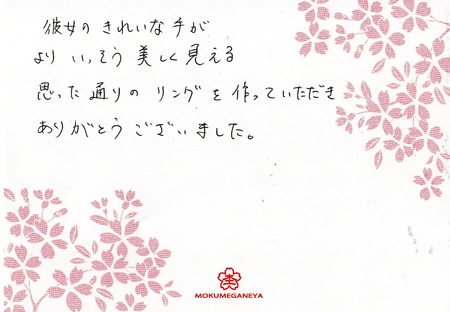 彼女の きれいな手が
より いっそう 美しく見える
思った通りの リングを作っていただき
ありがとうございました。
MOKUMEGANEYA